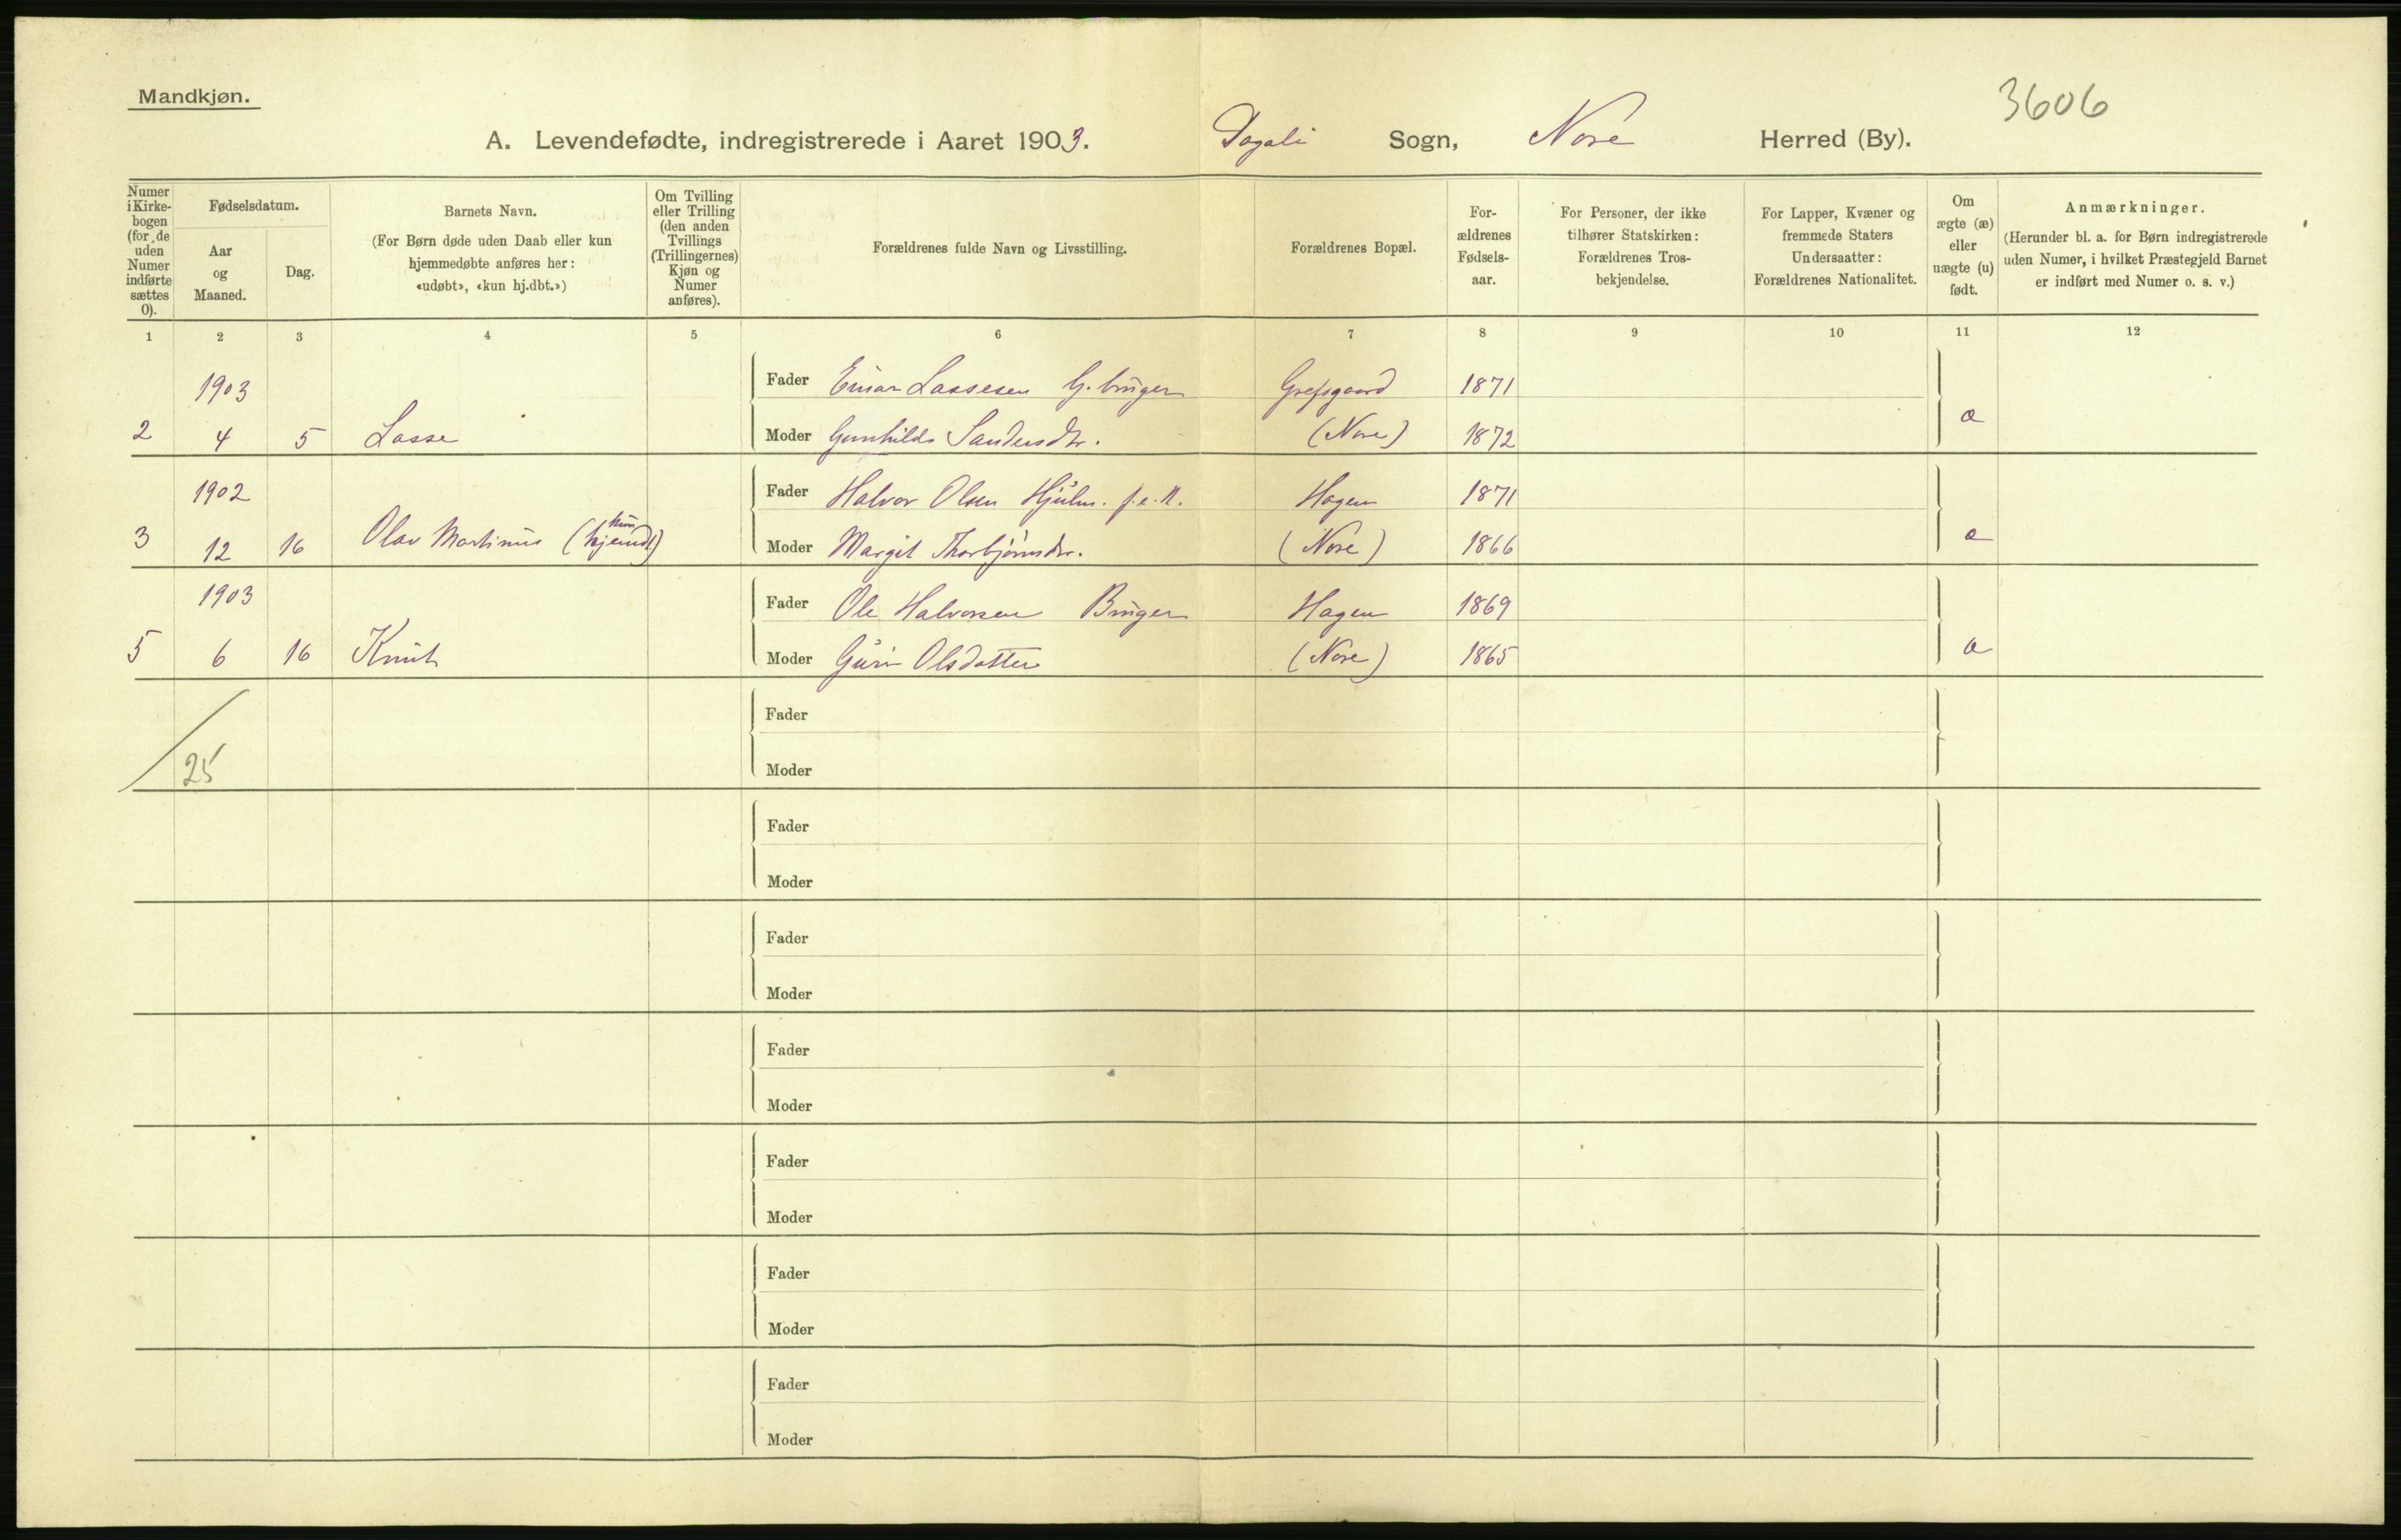 Mandkjøn.
3606
A. Levendefødte, indregistrerede i Aaret 1903. Dagali Sogn, Nore Herred (By).
Numer i Kirke-bogen (for de uden Numer indførte sættes 0).
Fødselsdatum.
Aar og Maaned.
Dag.
Barnets Navn.
(For Børn døde uden Daab eller kun hjemmedøbte anføres her: «udøbt», «kun hj.dbt.»)
Om Tvilling eller Trilling (den anden Tvillings (Trillingernes) Kjøn og Numer anføres).
Forældrenes fulde Navn og Livsstilling.
Forældrenes Bopæl.
For-ældrenes Fødsels-aar.
For Personer, der ikke tilhører Statskirken: Forældrenes Tros-bekjendelse.
For Lapper, Kvæner og fremmede Staters Undersaatter: Forældrenes Nationalitet.
Om ægte (æ) eller uægte (u) født.
Anmærkninger.
(Herunder bl. a. for Børn indregistrerede uden Numer, i hvilket Præstegjeld Barnet er indført med Numer o. s. v.)
1 2 3 4 5 6 7 8 9 10 11 12
1903 Fader Einar Lassesen G.bruger Grefsgaard 1871
2 4 5 Lasse Moder Gunhild Sandersdtr. (Nore) 1872 æ
1902 Fader Halvor Olsen Hjulm. f.e.R. Hagen 1871
3 12 16 Olav Martinus (kun hjemdt) Moder Margit Thorbjørnsdtr. (Nore) 1866 æ
1903 Fader Ole Halvorsen Bruger Hagen 1869
5 6 16 Knut Moder Guri Olsdatter (Nore) 1865 æ
Fader
25
Moder
Fader
Moder
Fader
Moder
Fader
Moder
Fader
Moder
Fader
Moder
Fader
Moder